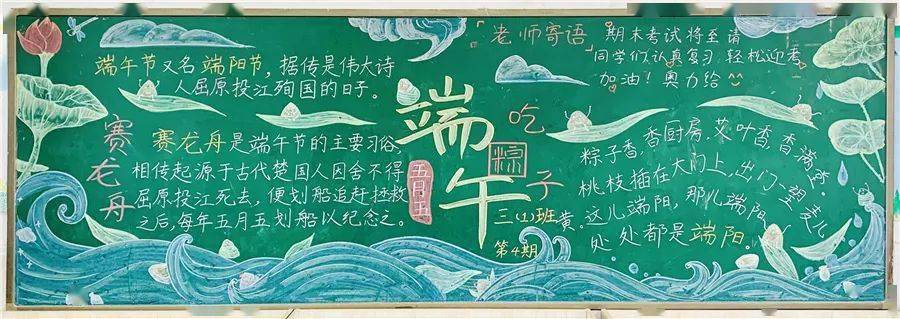 端午节又名端阳节，据传是伟大诗
人屈原投江殉国的日子。
赛龙舟
赛龙舟是端午节的主要习俗
相传起源于古代楚国人因舍不得
屈原投江死去，便划船追赶拯救
之后，每年五月五划船以纪念之。
端午
五月五
三(1)班
第4期
吃粽子
老师寄语
期末考试将至 请
同学们认真复习 轻松迎考
加油！奥力给
粽子香，香厨房，艾叶香，香满堂。
桃枝插在大门上，出门一望麦儿
黄。这儿端阳，那儿端阳，
处处都是端阳。